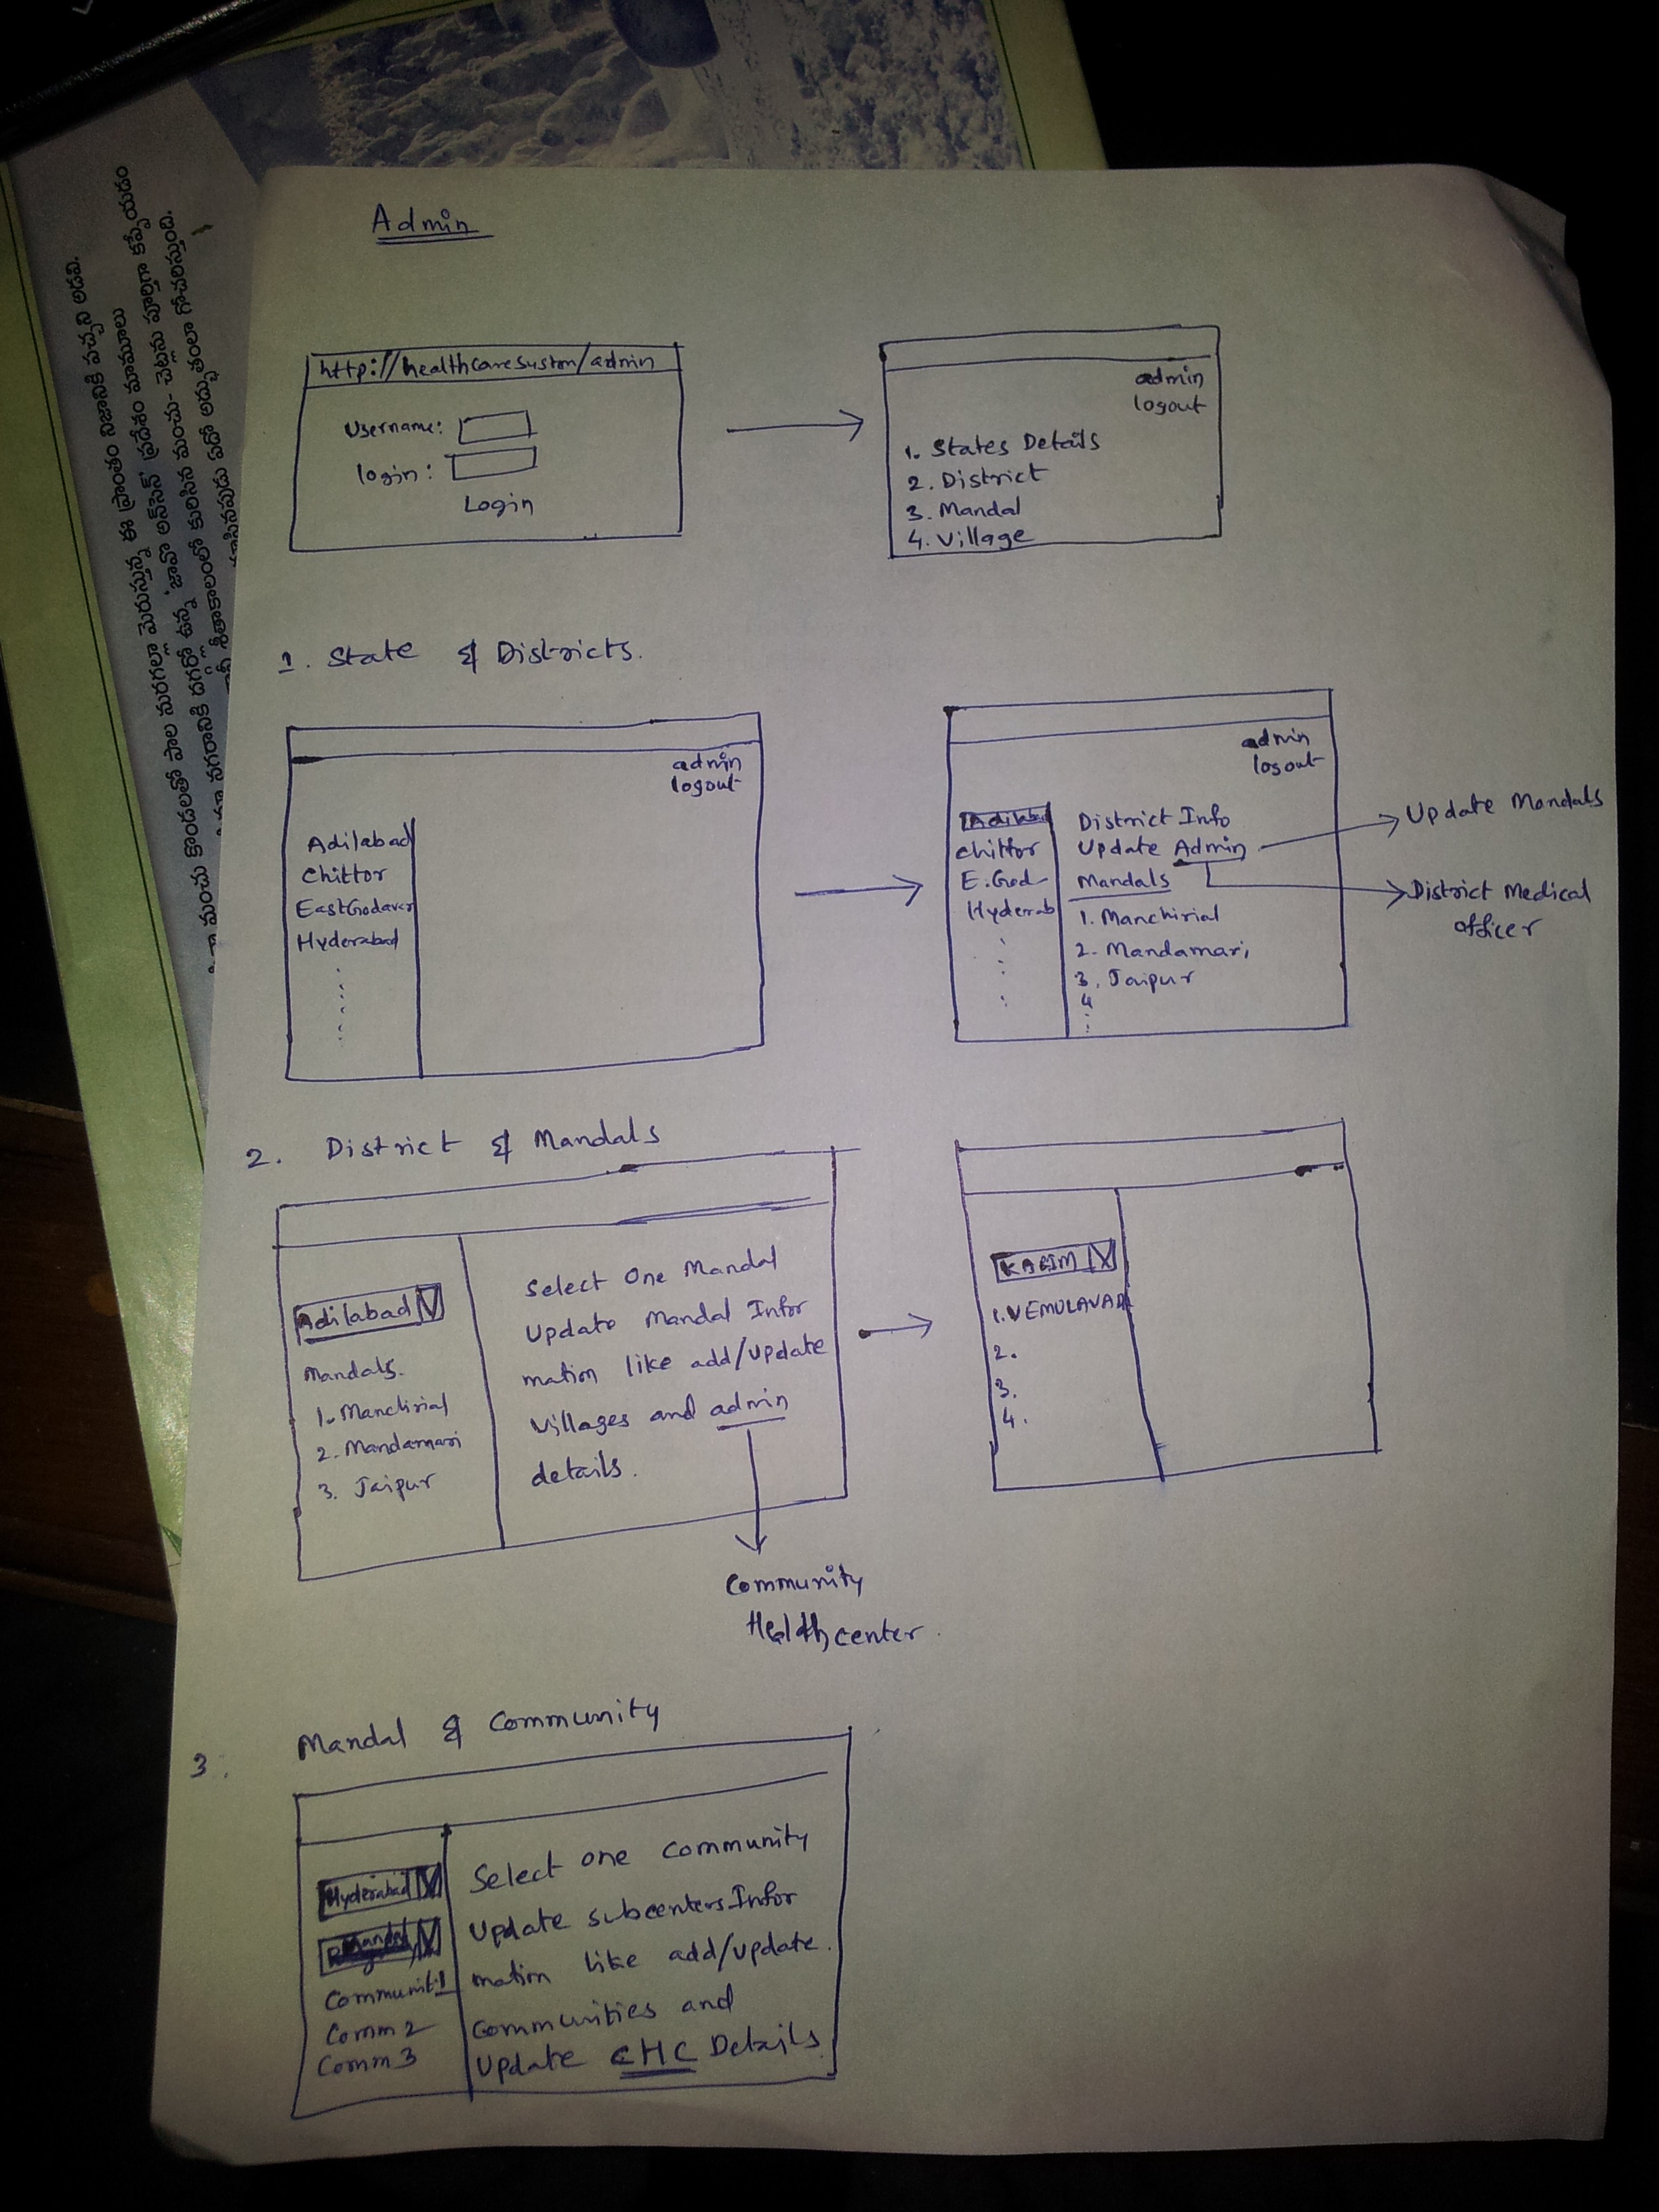 Admin
http://healthcaresustm/admin
Username:
login:
Login
admin
logout
1. States Details
2. District
3. Mandal
4. Village
1. State & Districts.
admin
logout
Adilabad
Chittor
EastGodavar
Hyderabad
admin
logout
Adilabad
Chittor
E.God
Hyderab
District Info
Update Admin
Mandals
1. Manchirial
2. Mandamari,
3. Jaipur
4
Update Mandals
District Medical
officer
2. District & Mandals
Adilabad
Mandals.
1. Manchirial
2. Mandamari
3. Jaipur
Select One Mandal
Update Mandal Infor
mation like add/update
Villages and admin
details.
Community
Healthcenter.
KARIM
1.VEMULAVADA
2.
3.
4.
3. Mandal & Community
Hyderabad
Mandal
Communit1
Comm2
Comm3
Select one Community
Update subcenters Infor
mation like add/update.
Communities and
Update CHC Details
మంచు కొండలతో పాల నురగల్లా మెరుస్తున్న ఈ ప్రాంతం నిజానికి పచ్చని అడవి.
నగరానికి దగ్గర్లో ఉన్న 'జావో అన్‌సెన్' ప్రదేశం మామూలు
శీతాకాలంలో కురిసిన మంచు- చెట్లను పూర్తిగా కప్పేయడం
చూసినపుడు ఏదో అద్భుతంలా గోచరిస్తుంది.